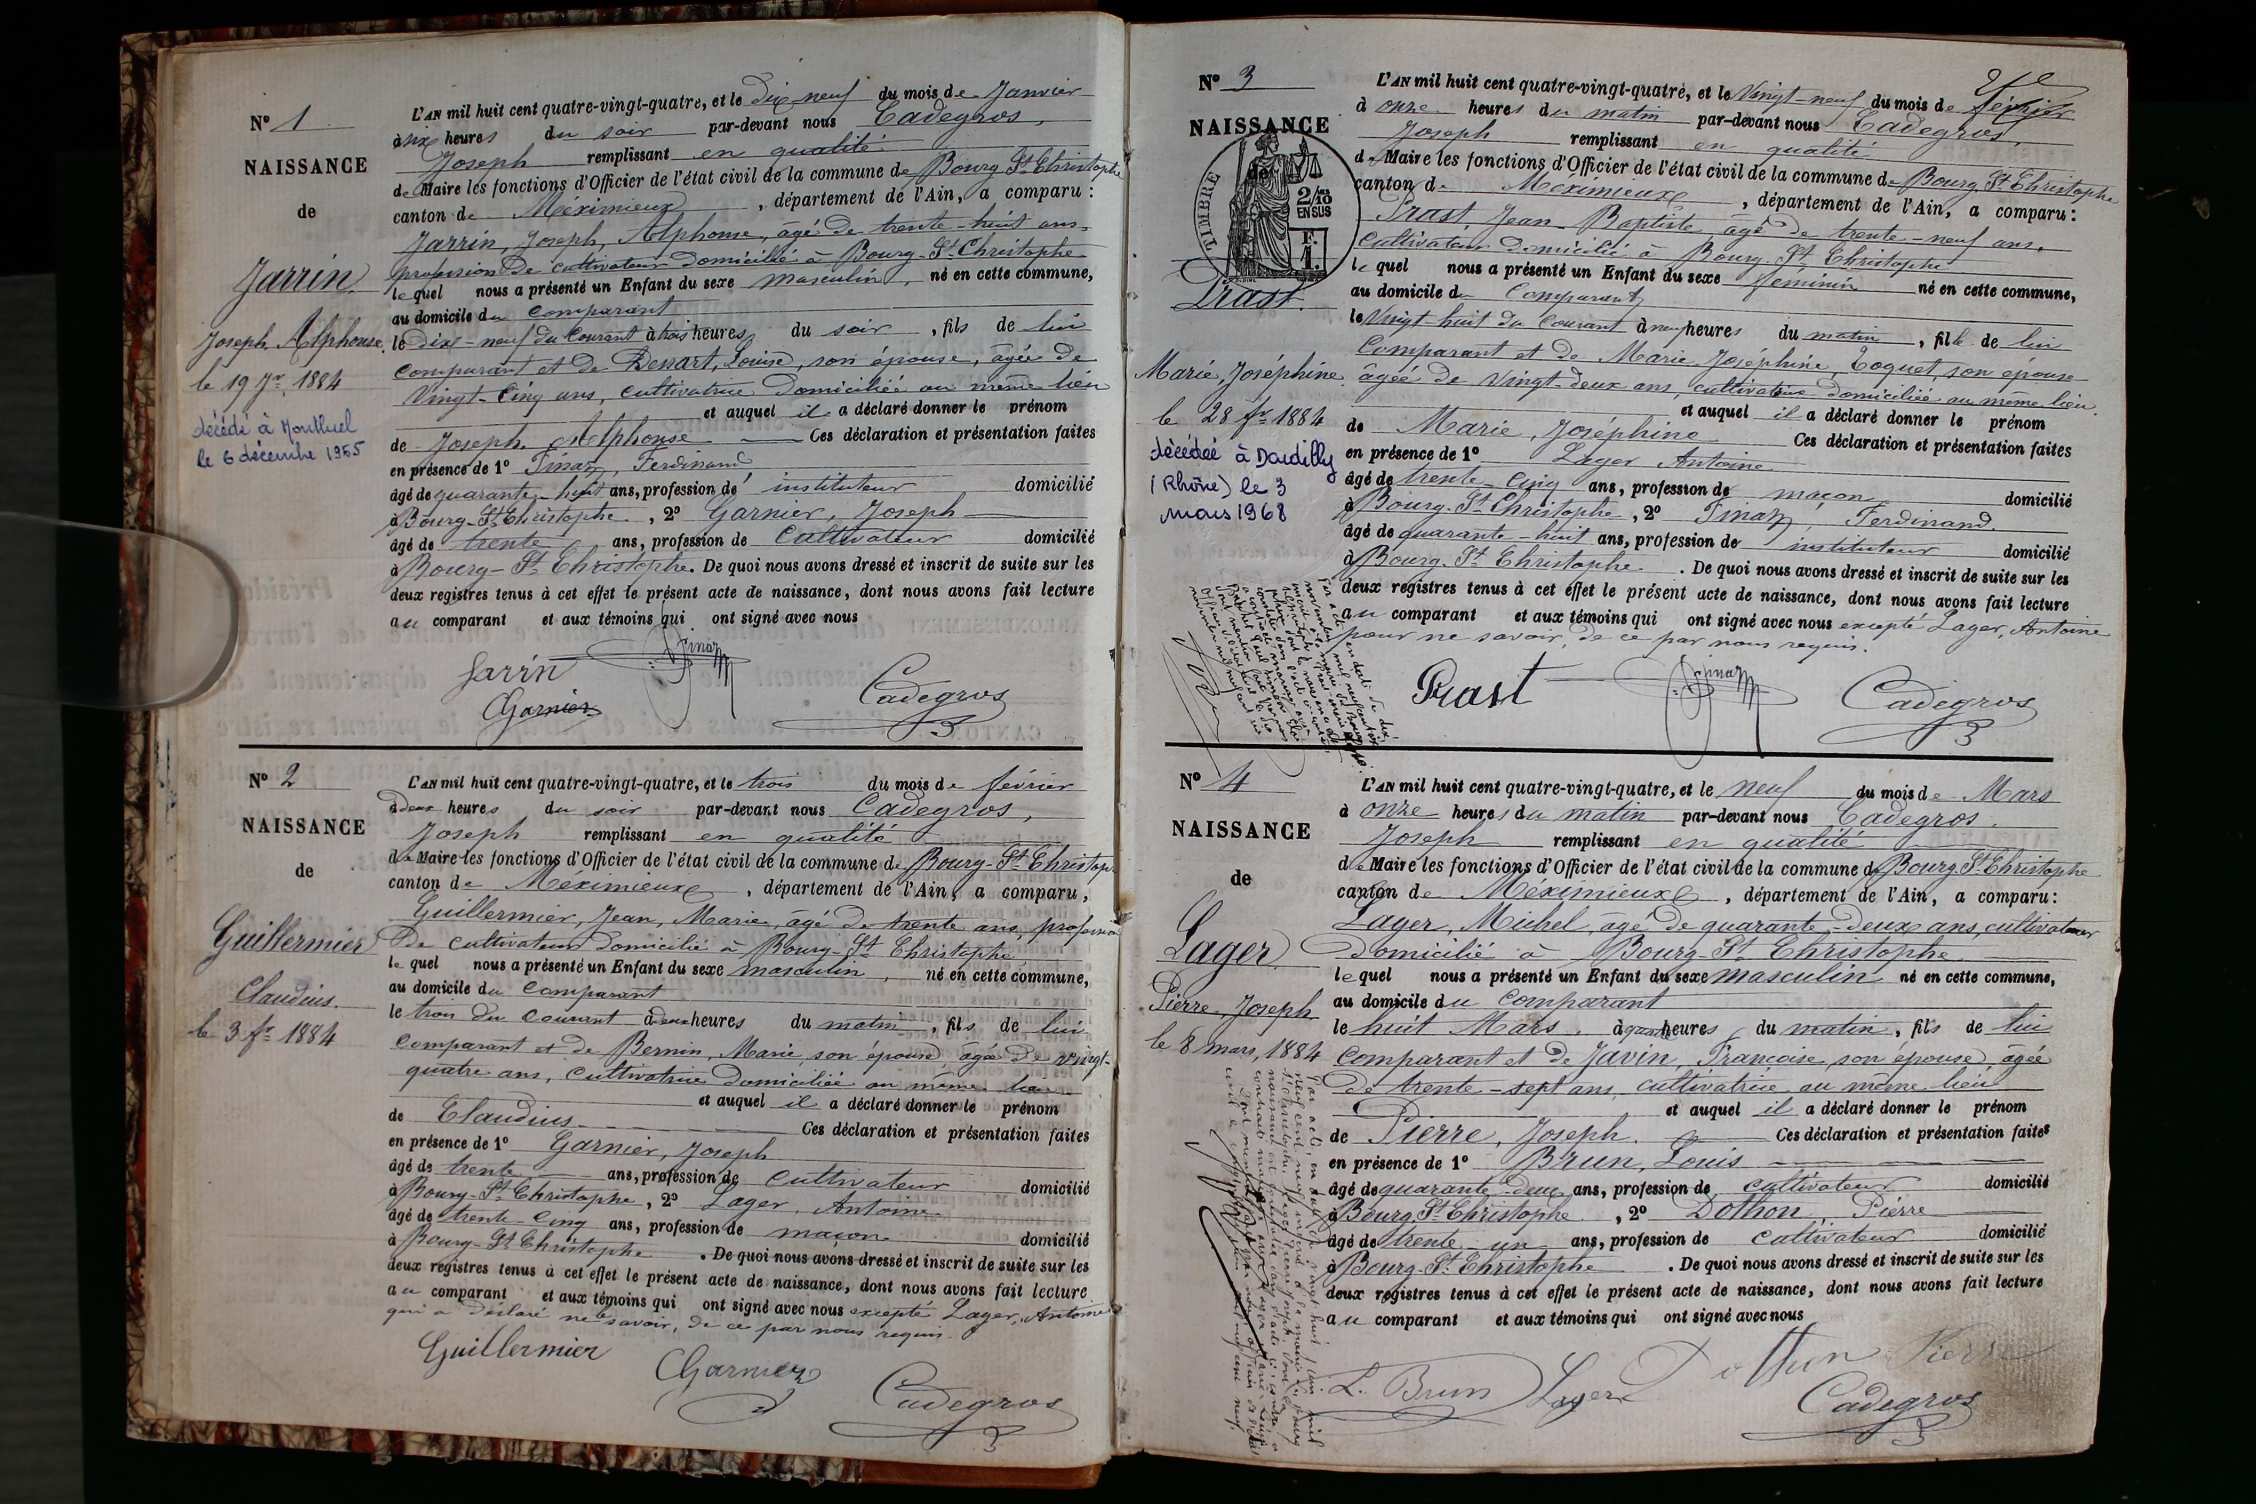 N° 1
NAISSANCE
de
Jarrin,
Joseph Alphonse,
le 19 Jr 1884
décédé à Montluel
le 6 décembre 1955
L'AN mil huit cent quatre-vingt-quatre, et le dix neuf du mois de Janvier
à six heures du soir par-devant nous Cadegros,
Joseph remplissant en qualité
de Maire les fonctions d'Officier de l'état civil de la commune de Bourg St Christophe
canton de Méximieux, département de l'Ain, a comparu :
Jarrin, Joseph, Alphonse, âgé de trente-huit ans,
profession de cultivateur domicilié à Bourg-St Christophe
lequel nous a présenté un Enfant du sexe masculin, né en cette commune,
au domicile du comparant
le dix-neuf du courant à trois heures du soir, fils de lui
comparant et de Louise, son épouse, âgée de
Vingt-cinq ans, cultivatrice domiciliée au même lieu
et auquel il a déclaré donner le prénom
de Joseph Alphonse Ces déclaration et présentation faites
en présence de 1° Tinaz, Ferdinand
âgé de quarante-huit ans, profession de instituteur domicilié
à Bourg-St Christophe, 2° Garnier, Joseph
âgé de trente ans, profession de Cultivateur domicilié
à Bourg-St Christophe. De quoi nous avons dressé et inscrit de suite sur les
deux registres tenus à cet effet le présent acte de naissance, dont nous avons fait lecture
au comparant et aux témoins qui ont signé avec nous
Jarrin Tinaz
Garnier Cadegros
N° 2
NAISSANCE
de
Guillermier
Claudius.
le 3 fr 1884
L'AN mil huit cent quatre-vingt-quatre, et le trois du mois de février
à deux heures du soir par-devant nous Cadegros,
Joseph remplissant en qualité
de Maire les fonctions d'Officier de l'état civil de la commune de Bourg-St Christop
canton de Méximieux, département de l'Ain, a comparu,
Guillermier, Jean, Marie, âgé de trente ans profession
de cultivateur domicilié à Bourg-St Christophe
lequel nous a présenté un Enfant du sexe masculin, né en cette commune,
au domicile du comparant
le trois du courant à deux heures du matin, fils de lui
comparant et de Bernin, Marie, son épouse âgée de vingt-
quatre ans, cultivatrice domiciliée au même lieu
et auquel il a déclaré donner le prénom
de Claudius Ces déclaration et présentation faites
en présence de 1° Garnier, Joseph
âgé de trente ans, profession de cultivateur domicilié
à Bourg-St Christophe, 2° Lager, Antoine
âgé de trente-cinq ans, profession de maçon domicilié
à Bourg-St Christophe. De quoi nous avons dressé et inscrit de suite sur les
deux registres tenus à cet effet le présent acte de naissance, dont nous avons fait lecture
au comparant et aux témoins qui ont signé avec nous excepté Lager, Antoine
qui a déclaré ne savoir, de ce par nous requis.
Guillermier Garnier Cadegros
N° 3
NAISSANCE
de
TIMBRE
2/10 EN SUS
F. 1.
Prast.
Marie, Joséphine
le 28 fr 1884
décédée à Dardilly
(Rhône) le 3
mars 1968
L'AN mil huit cent quatre-vingt-quatre, et le Vingt-neuf du mois de février
à onze heures du matin par-devant nous Cadegros,
Joseph remplissant en qualité
de Maire les fonctions d'Officier de l'état civil de la commune de Bourg St Christophe
canton de Méximieux, département de l'Ain, a comparu :
Prast Jean-Baptiste âgé de trente-neuf ans,
cultivateur domicilié à Bourg-St Christophe
lequel nous a présenté un Enfant du sexe féminin né en cette commune,
au domicile du Comparant
le Vingt-huit du courant à neuf heures du matin, fille de lui
Comparant et de Marie Joséphine, Coquet, son épouse
âgée de vingt-deux ans, cultivatrice domiciliée au même lieu.
et auquel il a déclaré donner le prénom
de Marie, Joséphine Ces déclaration et présentation faites
en présence de 1° Lager Antoine
âgé de trente-cinq ans, profession de maçon domicilié
à Bourg-St Christophe, 2° Tinaz, Ferdinand
âgé de quarante-huit ans, profession de instituteur domicilié
à Bourg-St Christophe. De quoi nous avons dressé et inscrit de suite sur les
deux registres tenus à cet effet le présent acte de naissance, dont nous avons fait lecture
au comparant et aux témoins qui ont signé avec nous excepté Lager, Antoine
pour ne savoir, de ce par nous requis.
Prast Tinaz Cadegros
N° 4
NAISSANCE
de
Lager
Pierre, Joseph
le 8 mars, 1884
L'AN mil huit cent quatre-vingt-quatre, et le neuf du mois de Mars
à onze heures du matin par-devant nous Cadegros.
Joseph remplissant en qualité
de Maire les fonctions d'Officier de l'état civil de la commune de Bourg St Christophe
canton de Méximieux, département de l'Ain, a comparu :
Lager, Michel, âgé de quarante-deux ans, cultivateur
domicilié à Bourg-St Christophe
lequel nous a présenté un Enfant du sexe masculin né en cette commune,
au domicile du comparant
le huit Mars à quatre heures du matin, fils de lui
comparant et de Javin, Françoise, son épouse, âgée
de trente-sept ans, cultivatrice au même lieu
et auquel il a déclaré donner le prénom
de Pierre, Joseph. Ces déclaration et présentation faites
en présence de 1° Brun, Louis
âgé de quarante-deux ans, profession de cultivateur domicilié
à Bourg-St Christophe, 2° Dothon, Pierre
âgé de trente un ans, profession de cultivateur domicilié
à Bourg-St Christophe. De quoi nous avons dressé et inscrit de suite sur les
deux registres tenus à cet effet le présent acte de naissance, dont nous avons fait lecture
au comparant et aux témoins qui ont signé avec nous
L. Brun Lager Dothon Pierre
Cadegros